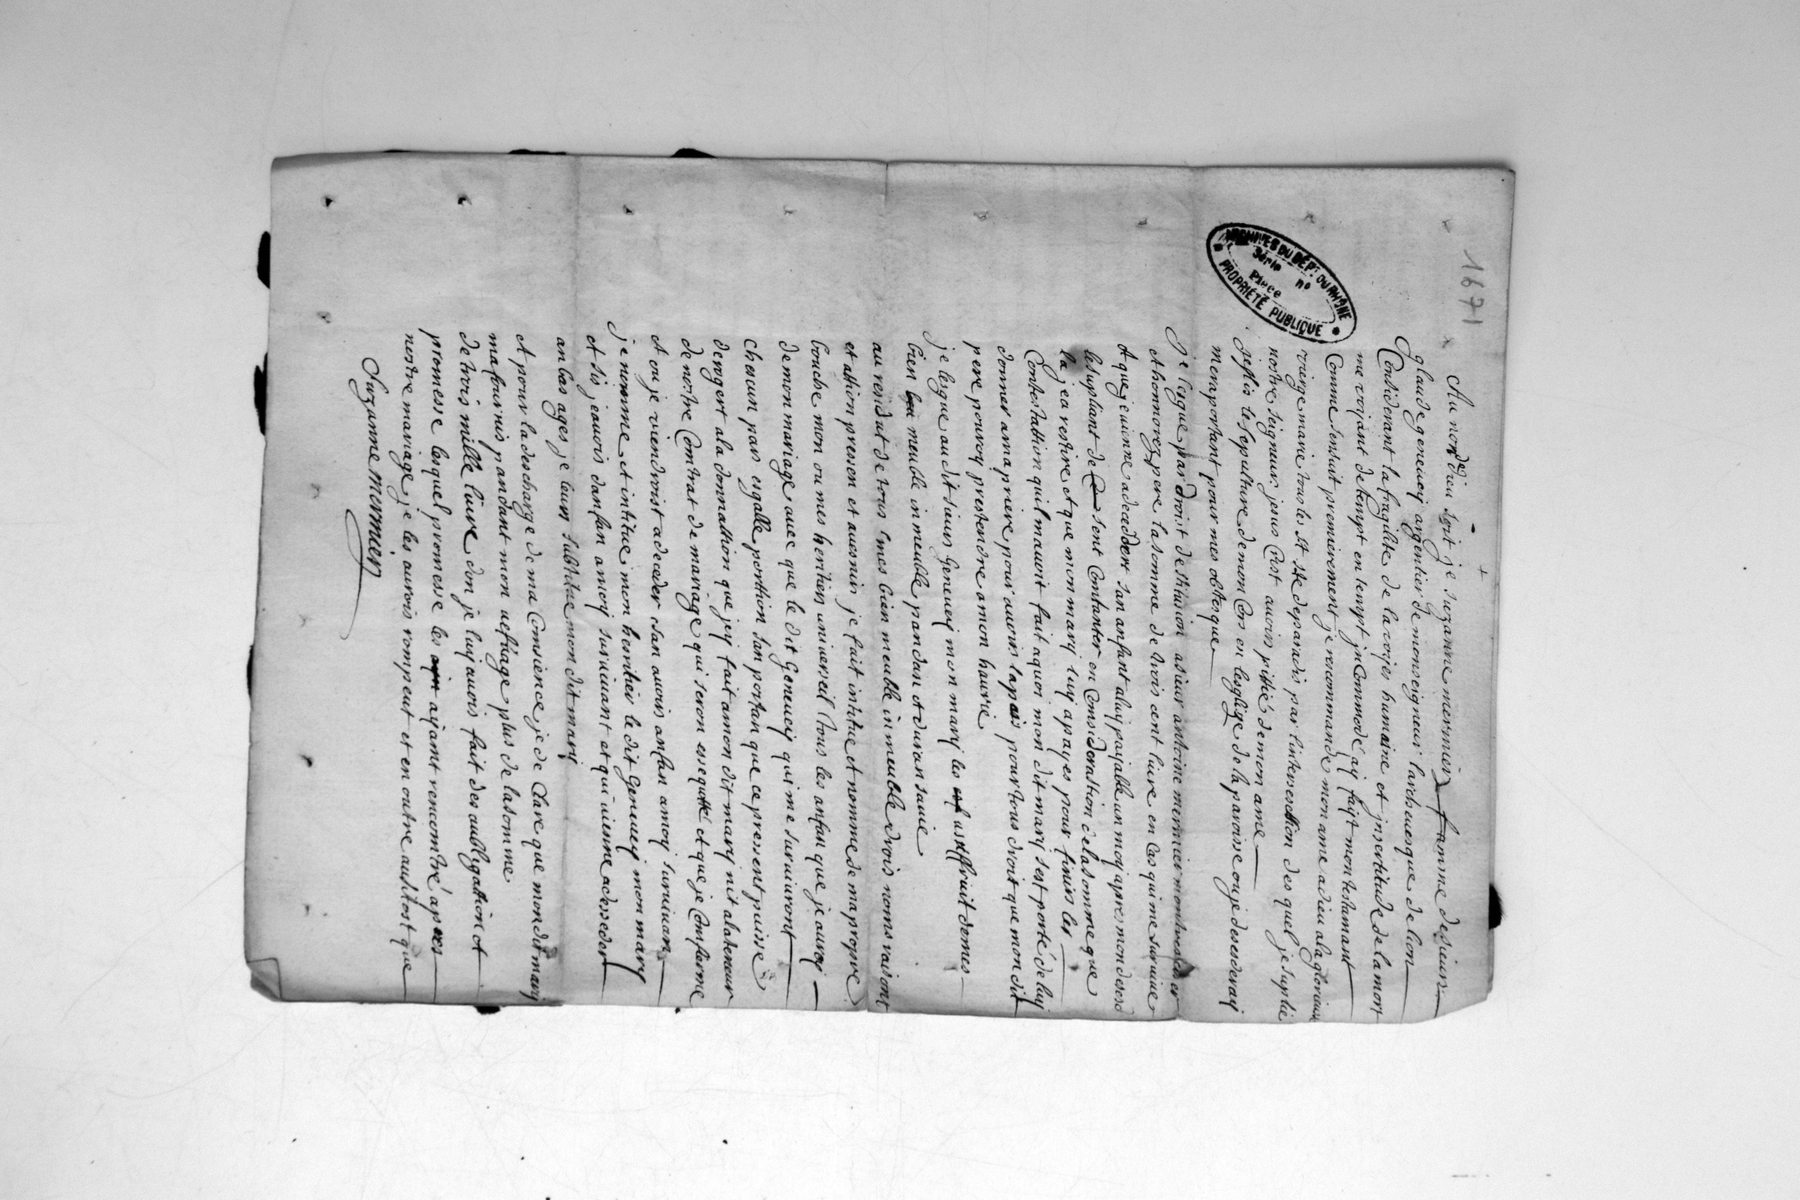 1671
ARCHIVES DU DÉPT DU RHÔNE
Série nº
Pièce
PROPRIÉTÉ PUBLIQUE
Au nom de dieu soit je suzanne mermier famme de sieur
glaude genevey argentier de monseigneur larcheuesque de lion
Considerant la fragilite de la vije humaine et jnsertitude de la mort
me voijant de tempt en tempt jncommodé aij faijt mon testamant
Comme sensuit premierement je recommande mon ame a dieu a la glorieuse
vierge marie tous les st et ste de paradis par lintersesttion des quel je suplie
nostre seigneur jesus Crist auoir pittié de mon ame
jeslis le sepulture de mon Cors en lesglize de la paroisse ou je desesderaij
me raportant pour mes obseque
je legue par droit destitution a sieur antoine mermier mon tres cher
et honnorez pere la somme de trois cent liure en Cas qui me suruiue
et que je vienne a deceder san anfant a luij payable un moy apres mon deces
le supliant de sent Contanter en Consideration de la somme que
la jea restire et que mon marij luij a payes pour finir les
Contestattion quil mauoit fait a quoi mon dit marij sest porté de luij
donner a ma priere pour auoir la pais pour tous droit que mon dit
pere pouroy prestendre a mon hoirie
je legue au dit sieur Geneuey mon mary les usuffruit de mes
bien meuble inmeuble pandan et duran sa vie
au residut de tous mes bien meuble inmeuble drois noms raisont
et attion presen et auenir je fait institue et nomme de ma propre
bouche mon ou mes heritier universeil tous les anfan que je auroy
de mon mariage auec que le dit Geneuey qui me suruiuront
chescun par esgalle porthion san portan que ce pressent puisse
deroger a la donnathion que jey fait a mon dit mary nit a la teneur
de nostre Contrat de mariage qui seron essequtté et que je Confirme
et ou je viendroit a deceder san auoir anfan a moy suruiuan
je nomme et intitue mon heritier le dit Geneuey mon mary
et sis jeauois danfan a moy suruiuant et qui vienne a desseder
an bas ages je leur subtitue mon dit mary
et pour la descharge de ma Consience je de Clare que mon dit mary
ma fournis pandant mon uefuage plus de la somme
de trois mille liure don je luy auois fait des aubligattion et
promesse lesquel promesse les ayant rencontré apres
nostre mariage je les aurois rompeut et en outre autitost que
Suzanne mermier